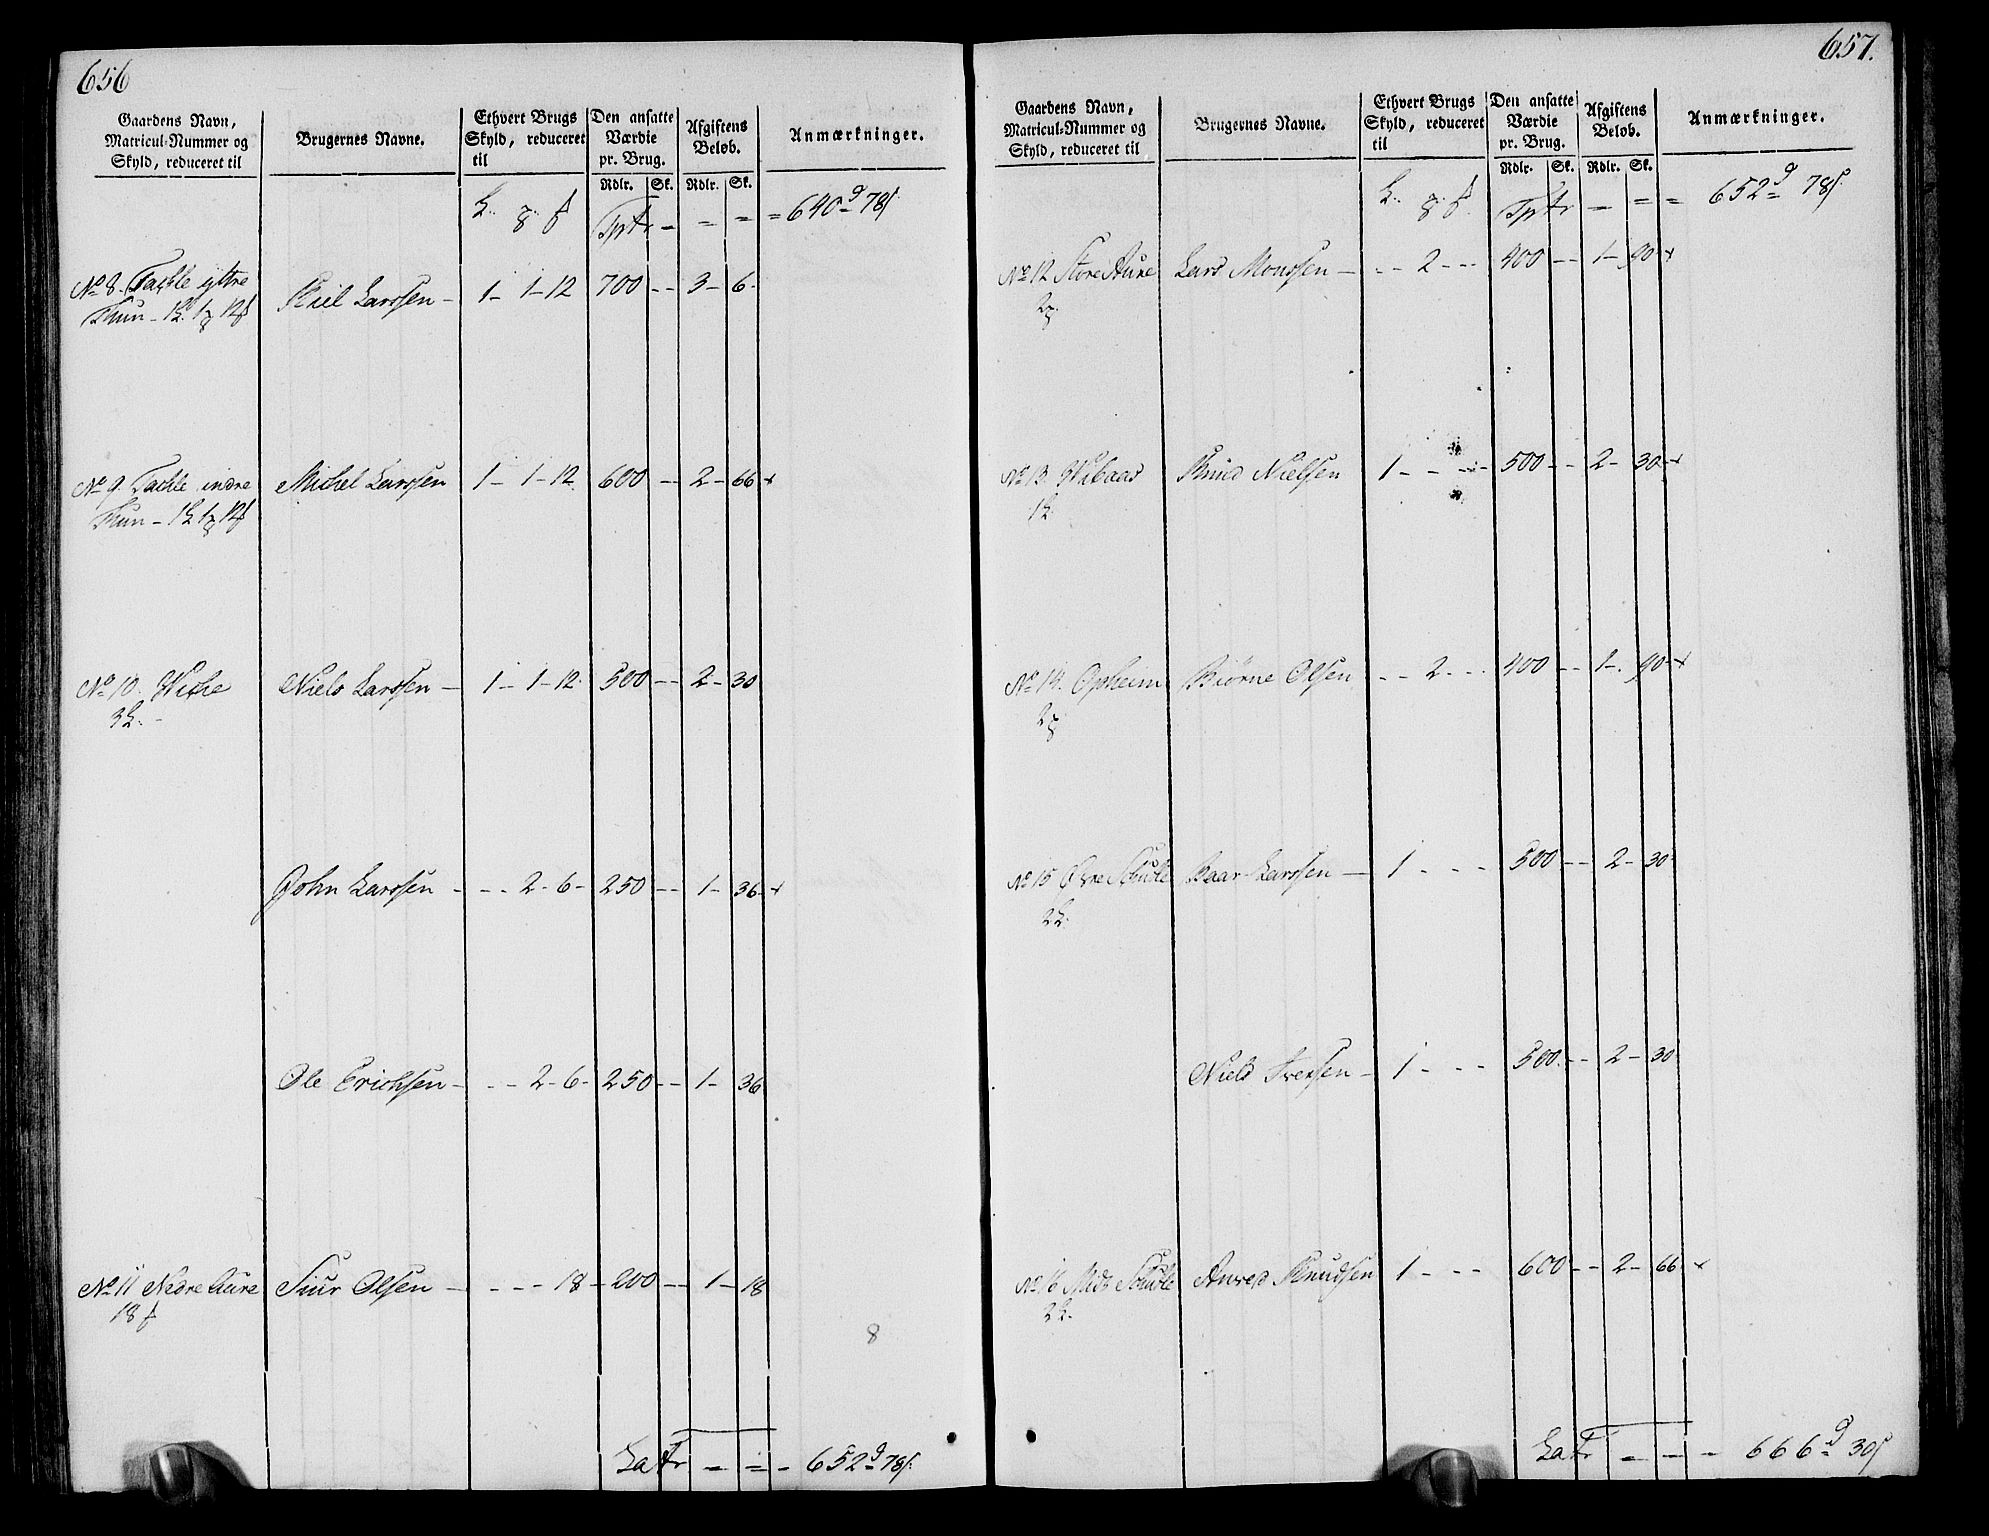 656
Gaardens Navn,
Matricul-Nummer og
Skyld, reduceret til
Brugernes Navne.
Ethvert Brugs
Skyld, reduceret
til
Den ansatte
Værdie
pr. Brug.
Afgiftens
Beløb.
Anmærkninger.
Rdlr. Sk. Rdlr. Sk.
Tptr - - - = 640 78
No 8. Tackle yttre Kiel Larssen - 1 - 1 - 12 700 - - 3 - 6 -
Thun - 1 1 12
No 9. Tackle indre Michel Larssen 1 - 1 - 12 600 - - 2 - 66
Thun - 1 1 12
No 10. Niels Larssen - 1 - 1 - 12 500 - - 2 - 30
3
John Larssen - - - 2 - 6 - 250 - - 1 - 36 -
Ole Erichsen - - - 2 - 6 - 250 - - 1 - 36
No 11 Nedre Aure Siur Olsen - - - - 18 - 200 - - 1 - 18
18
8
LaTr - = - 652 78
657.
Gaardens Navn,
Matricul-Nummer og
Skyld, reduceret til
Brugernes Navne.
Ethvert Brugs
Skyld, reduceret
til
Den ansatte
Værdie
pr. Brug.
Afgiftens
Beløb.
Anmærkninger.
Rdlr. Sk. Rdlr. Sk.
Tptr - = = 652 78
No 12 Store Aure Lars Monssen - - - 2 - - - 400 - - 1 - 90
2
No 13. Knud Nielsen 1 - - - - 500 - - 2 - 30
1
No 14. Opheim Biørne Olsen - - 2 - - - 400 - - 1 - 90
2
No 15 Øvre Baar Larssen - 1 - - - 500 - - 2 - 30
2
Niels Iversen - 1 - - - 500 - - 2 - 30
No 16 Knudsen 1 - - - 600 - - 2 - 66
2
LaTr - - - 666 30